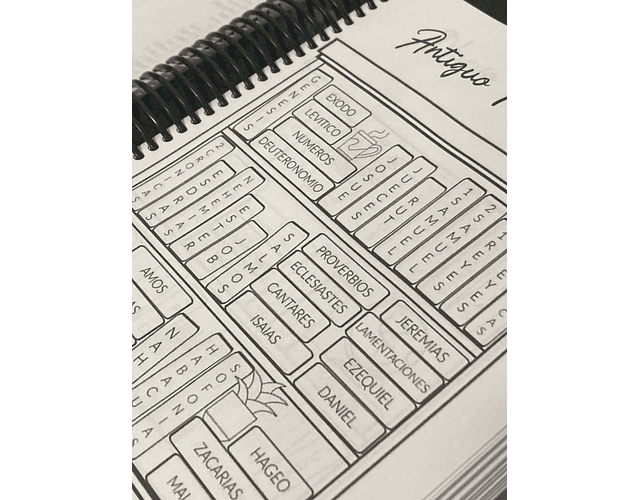 Antiguo
GENESIS
EXODO
LEVITICO
NUMEROS
DEUTERONOMIO
JOSUE
JUECES
RUT
1 SAMUEL
2 SAMUEL
1 REYES
2 CRONICAS
ESDRAS
NEHEMIAS
ESTER
JOB
SALMOS
PROVERBIOS
ECLESIASTES
CANTARES
ISAIAS
JEREMIAS
LAMENTACIONES
EZEQUIEL
DANIEL
AMOS
HABACUC
SOFONIAS
HAGEO
ZACARIAS
MAL